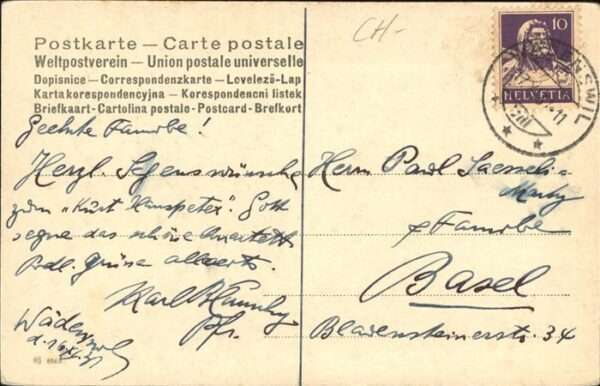 CH-
Postkarte — Carte postale
Weltpostverein — Union postale universelle
Dopisnice — Correspondenzkarte — Levelező-Lap
Karta korespondencyjna — Korespondencni listek
Briefkaart - Cartolina postale - Postcard - Brefkort
10
HELVETIA
Geehrte Familie!
Herzl. Segenswünsche
zum "Kurt Hanspeter". Gott
segne das schöne Quartett
Bdl. Grüsse allerorts.
Karl
Pfr.
Herrn Paul
& Familie
Basel
Blauensteinerstr. 34